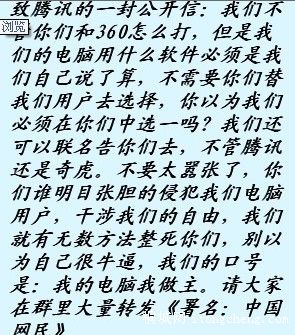 致腾讯的一封公开信：我们不
浏览
你们和360怎么打，但是我
们的电脑用什么软件必须是我
们自己说了算，不需要你们替
我们用户去选择，你以为我们
必须在你们中选一吗？我们还
可以联名告你们去，不管腾讯
还是奇虎。不要太嚣张了，你
们谁明目张胆的侵犯我们电脑
用户，干涉我们的自由，我们
就有无数方法整死你们，别以
为自己很牛逼，我们的口号
是：我的电脑我做主。请大家
在群里大量转发《署名：中国
网民》